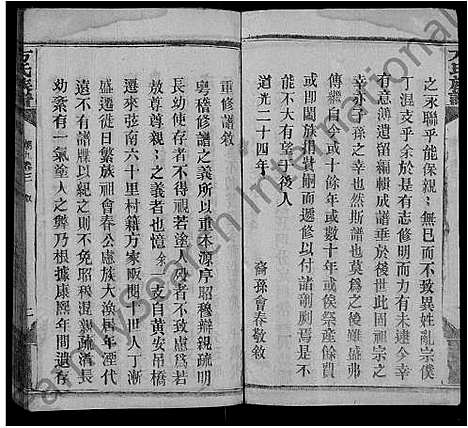 之永聯乎能保親〻無已而不致異姓乱宗僕
丁涅支乎余於是有志修明而力有未逮今幸
有息漁遺留編輯成譜垂於後世此固祖宗之
幸亦子孫之幸也然斯譜也莫為之後雖盛弗
傳繼自今或十餘年或數十年或俟祭產餘費
或即闔族捐貲嗣而邇修以付諸剞劂焉是不
能不大有望于後人
道光二十四年
裔孫會春敬敘
重修譜敘
粵稽修譜之義所以重本源序昭穆辦親疏明
長幼使存者不得視若塗歿者不致慮為若
敖尊尊親〻之義者也憶余一支自黃安吊橋
遷來弦南六十里村籍方家畈閱十世人丁漸
盛遷徙日繁族祖會春公慮族大渙居年湮代
遠不有譜牒以親之則不免昭穆混親疏淆長
幼紊有一氣塗人之弊乃根據康熙年間遺存
方氏族譜
卷三
敘
FamilySearch International